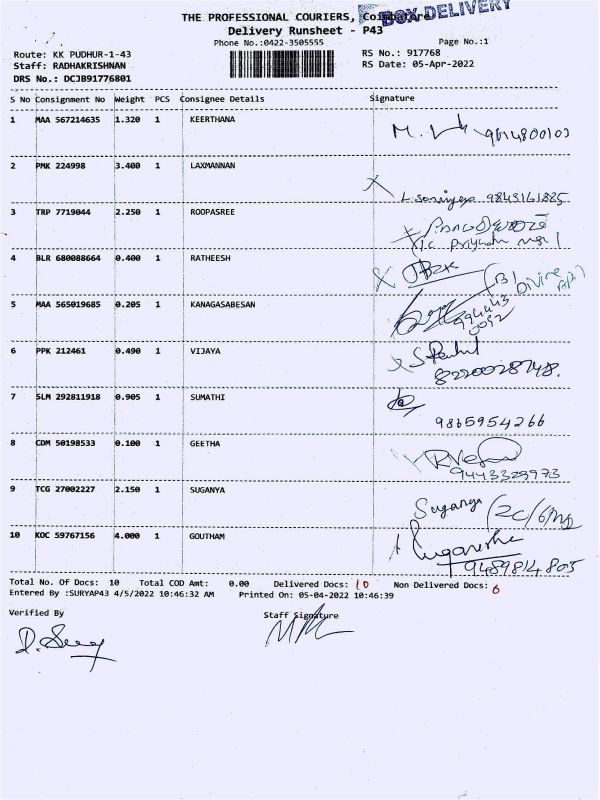 BOX DELIVERY
THE PROFESSIONAL COURIERS, Coimbatore
Delivery Runsheet - P43
Phone No.:0422-3505555
Page No.:1
Route: KK PUDHUR-1-43
RS No.: 917768
Staff: RADHAKRISHNAN
RS Date: 05-Apr-2022
DRS No.: DCJB91776801
S No Consignment No Weight PCS Consignee Details Signature
1 MAA 567214635 1.320 1 KEERTHANA
2 PMK 224998 3.400 1 LAXMANNAN
9843161885
3 TRP 7719044 2.250 1 ROOPASREE
4 BLR 680088664 0.400 1 RATHEESH
B1
Divine
5 MAA 565019685 0.205 1 KANAGASABESAN
994443
0092
6 PPK 212461 0.490 1 VIJAYA
8220028748.
7 SLM 292811918 0.905 1 SUMATHI
9865954266
8 CDM 50198533 0.100 1 GEETHA
9443329973
9 TCG 27002227 2.150 1 SUGANYA
Suganya
10 KOC 59767156 4.000 1 GOUTHAM
9489814805
Total No. Of Docs: 10 Total COD Amt: 0.00 Delivered Docs: 10 Non Delivered Docs: 0
Entered By :SURYAP43 4/5/2022 10:46:32 AM Printed On: 05-04-2022 10:46:39
Verified By
Staff Signature